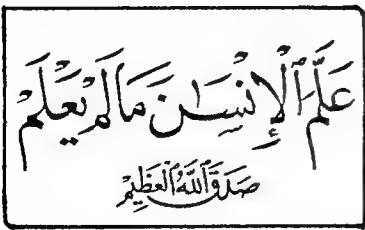 عَلَّمَ ٱلْإِنسَٰنَ مَا لَمْ يَعْلَمْ
صَدَقَ ٱللَّهُ ٱلْعَظِيمُ